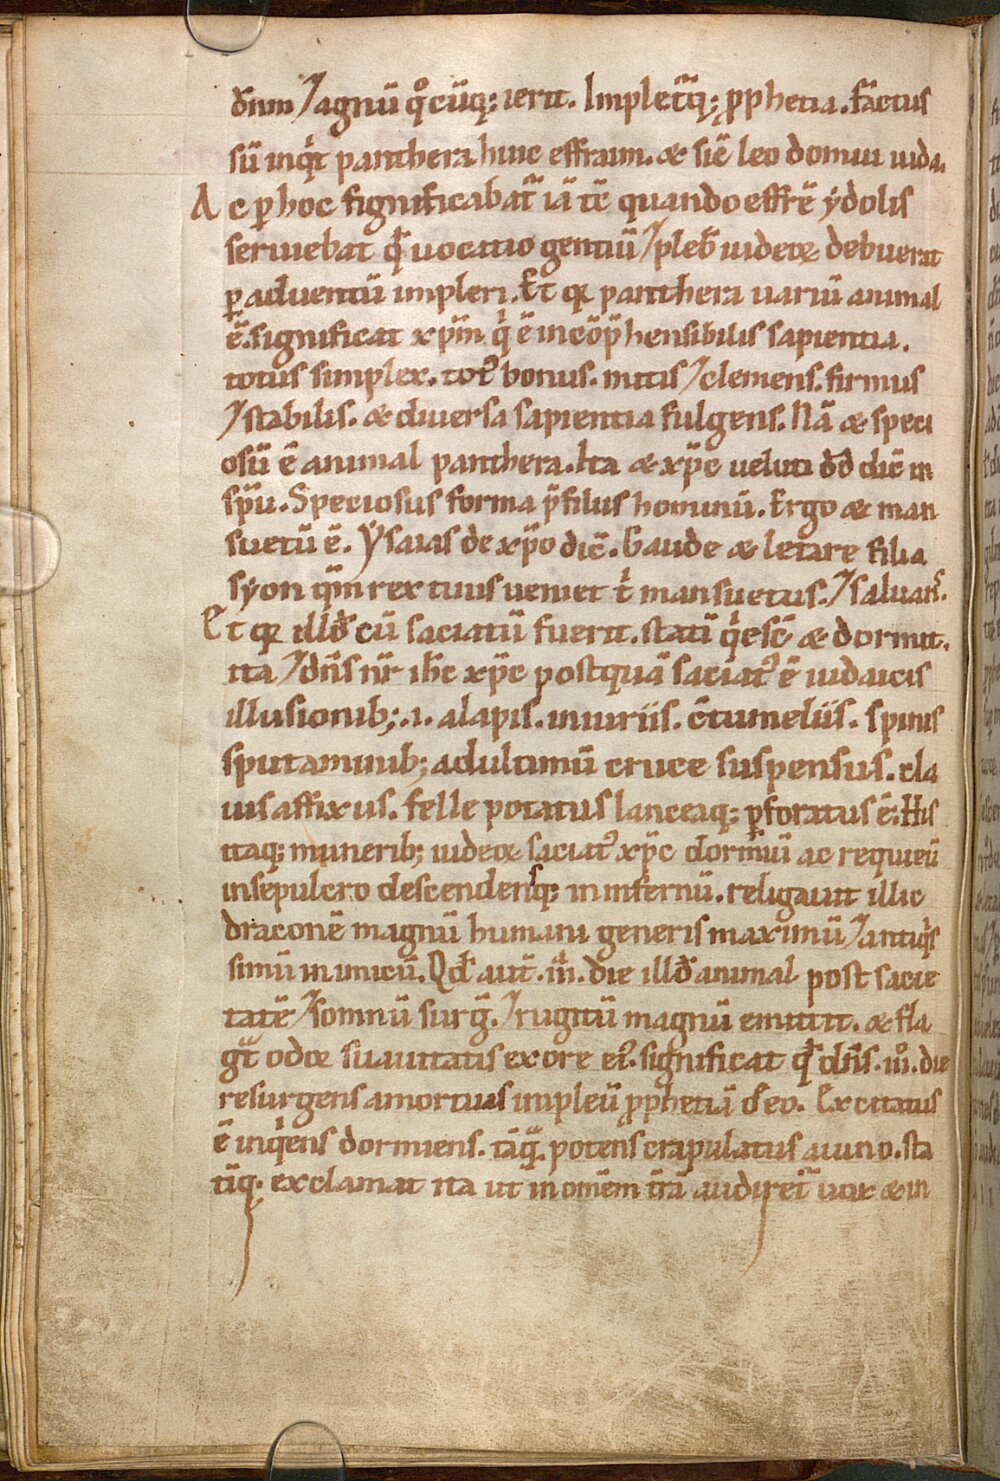 dn̄m ⁊ agnū qͦcūq; ierit. Impletaq; ꝓphetia. factus
sū inqͥt panthera huic effraim. & sic̄ leo domui iuda.
Ac ꝑ hoc significabat̄ iā tc̄ quando effrē ydolis
seruiebat qͩ uocatio gentiū ⁊ pleb̄ iudeoꝝ debuerit
ꝑ aduentū impleri. Et qꝛ panthera uariū animal
ē. significat xp̄m qͥ ē incōp̄hensibilis sapientia.
totus simplex. tot᾽ bonus. mitis ⁊ clemens. firmus
⁊ stabilis. & diuersa sapientia fulgens. Nā & speci
osū ē animal panthera. Ita & xp̄c ueluti dd̄ dic̄ in
sp̄u. Speciosus forma p̄ filiis hominū. Ergo & man
suetū ē. Ysaias de xp̄o dic̄. Gaude & letare filia
syon qm̄ rex tuus ueniet tͥ mansuetus. ⁊ saluans.
Et qꝛ illd̄ cū saciatū fuerit. statī qͥesc̄ & dormit.
ita ⁊ dn̄s nr̄ ih̄c xp̄c postquā saciat᾽ ē iudaicis
illusionib;. .i. alapis. iniuriis. c̄tumeliis. spinis
sputaminib; adultimū cruce suspensus. cla
uis affixus. felle potatus lanceaq; ꝑforatus ē. His
itaq; munerib; iudeoꝝ saciat᾽ xp̄c dormiū ac requieū
insepulcro descendensq; in infernū. religauit illic
draconē magnū humani generis maximū ⁊ antiqͥs
simū inimicū. Qd̄ aut̄ .iii. die illd̄ animal post sacie
tatē ⁊ somnū surḡ. ⁊ rugitū magnū emittit. & fla
gt̄ odoꝝ suauitatis ex ore ei᾽. significat qͩ dn̄s .iii. die
resurgens amortuis impleū ꝓphetiā d̄ eo. Excitatus
ē inqͥens dormiens. tāq̄. potens crapulatus auino. sta
tīq; exclamat ita ut in omēm trā audiret̄ uox & in